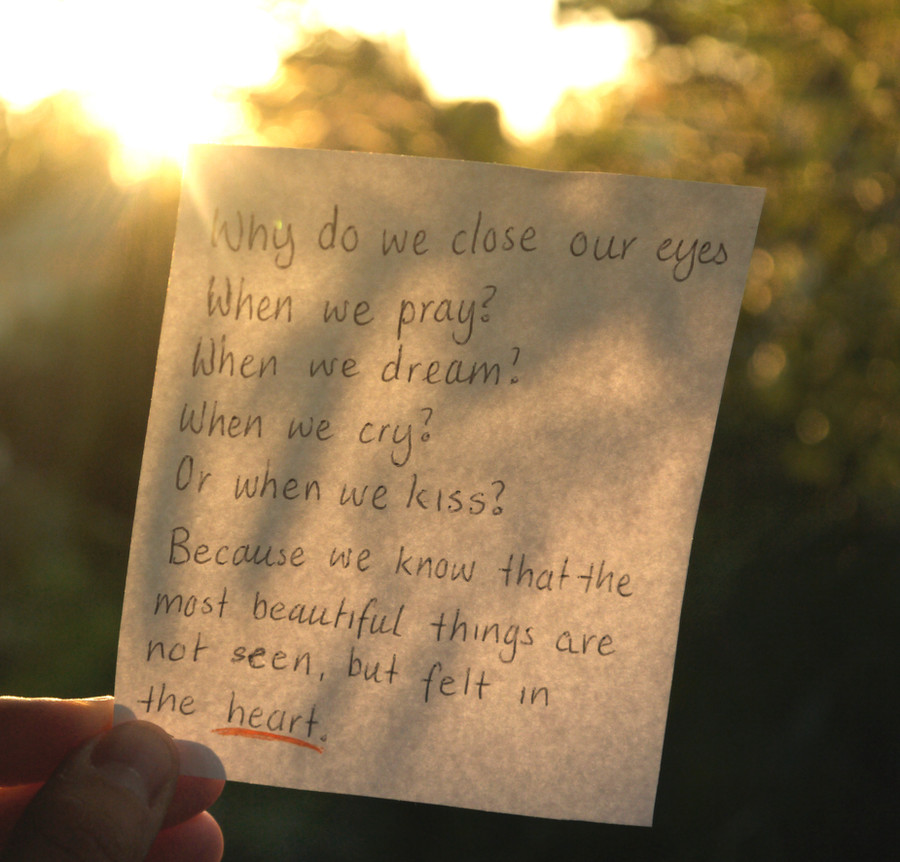 Why do we close our eyes
When we pray?
When we dream?
When we cry?
Or when we kiss?
Because we know that the
most beautiful things are
not seen, but felt in
the heart.